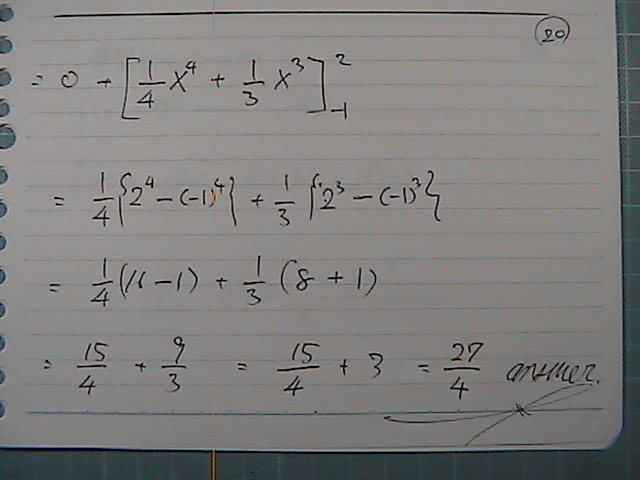 (20)
= 0 + [1/4 x^4 + 1/3 x^3]_{-1}^{2}
= 1/4 {2^4 - (-1)^4} + 1/3 {2^3 - (-1)^3}
= 1/4 (16 - 1) + 1/3 (8 + 1)
= 15/4 + 9/3 = 15/4 + 3 = 27/4 answer.